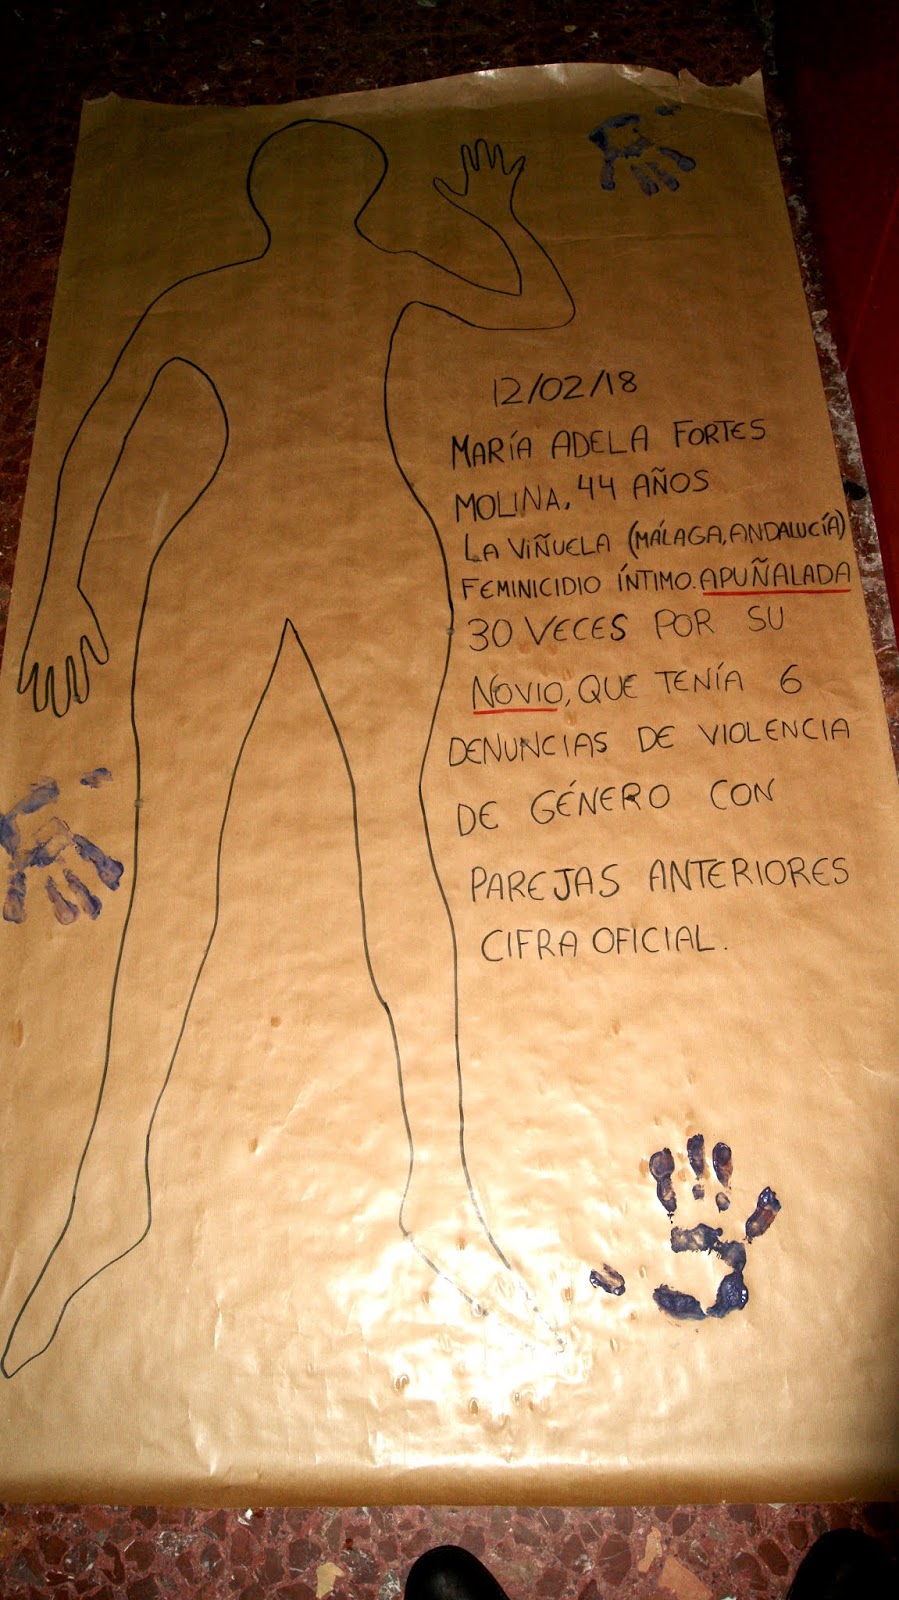 12/02/18
MARÍA ADELA FORTES
MOLINA, 44 AÑOS
LA VIÑUELA (MÁLAGA, ANDALUCÍA)
FEMINICIDIO ÍNTIMO. APUÑALADA
30 VECES POR SU
NOVIO, QUE TENÍA 6
DENUNCIAS DE VIOLENCIA
DE GÉNERO CON
PAREJAS ANTERIORES
CIFRA OFICIAL.